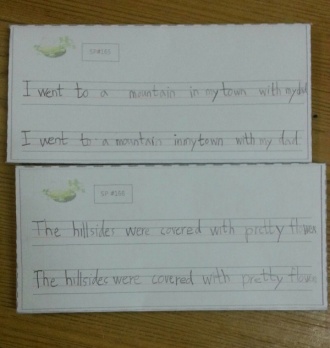 I went to a mountain in my town with my dad
I went to a mountain in my town with my dad
The hillsides were covered with pretty
The hillsides were covered with pretty